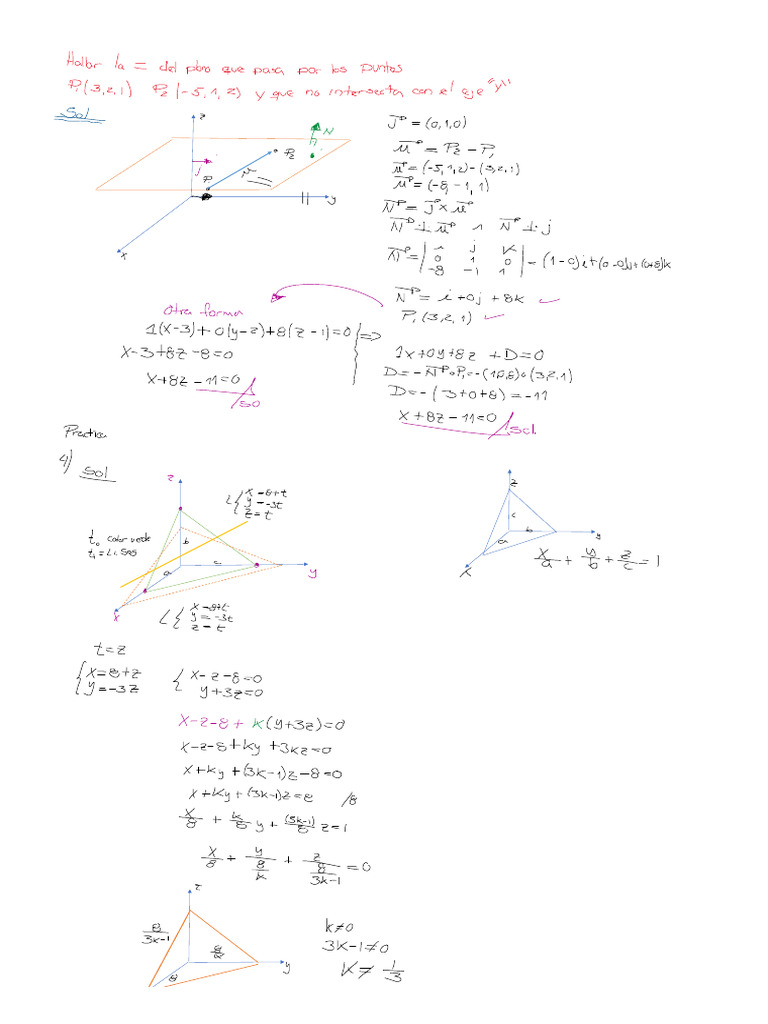 Hallar la = del plano que pasa por los puntos
P₁(3,2,1) P₂(-5,1,2) y que no intersecta con el eje "y"
Sol
z
N
P₂
P₁
j
μ
y
x
j = (0,1,0)
μ = P₂ - P₁
μ = (-5,1,2)-(3,2,1)
μ = (-8,-1,1)
N = j x μ
N ⊥ μ ∧ N ⊥ j
N = | i j k
0 1 0
-8 -1 1 | = (1-0)i+(0-0)j+(0+8)k
N = i + 0j + 8k ✓
P₁(3,2,1) ✓
Otra forma
1(x-3)+0(y-2)+8(z-1)=0 } ⇒
x-3+8z-8=0
x+8z-11=0
so
1x+0y+8z+D=0
D=-N∘P₁=-(1,0,8)∘(3,2,1)
D=-(3+0+8)=-11
x+8z-11=0
sol
Practica
4) Sol
z
L { x=8+t
y=-3t
z=t
t₀ color verde
t₁ = Li. Sas
b
a
c
y
x
L { x=8+t
y=-3t
z=t
z
c
a
b
y
x
x/a + y/b + z/c = 1
t=z
{ x=8+z
y=-3z
{ x-z-8=0
y+3z=0
x-z-8+k(y+3z)=0
x-z-8+ky+3kz=0
x+ky+(3k-1)z-8=0
x+ky+(3k-1)z=8 /8
x/8 + k/8 y + (3k-1)/8 z=1
x/8 + y/(8/k) + z/(8/(3k-1)) = 0
z
8/(3k-1)
8/k
8
y
k≠0
3k-1≠0
k≠ 1/3